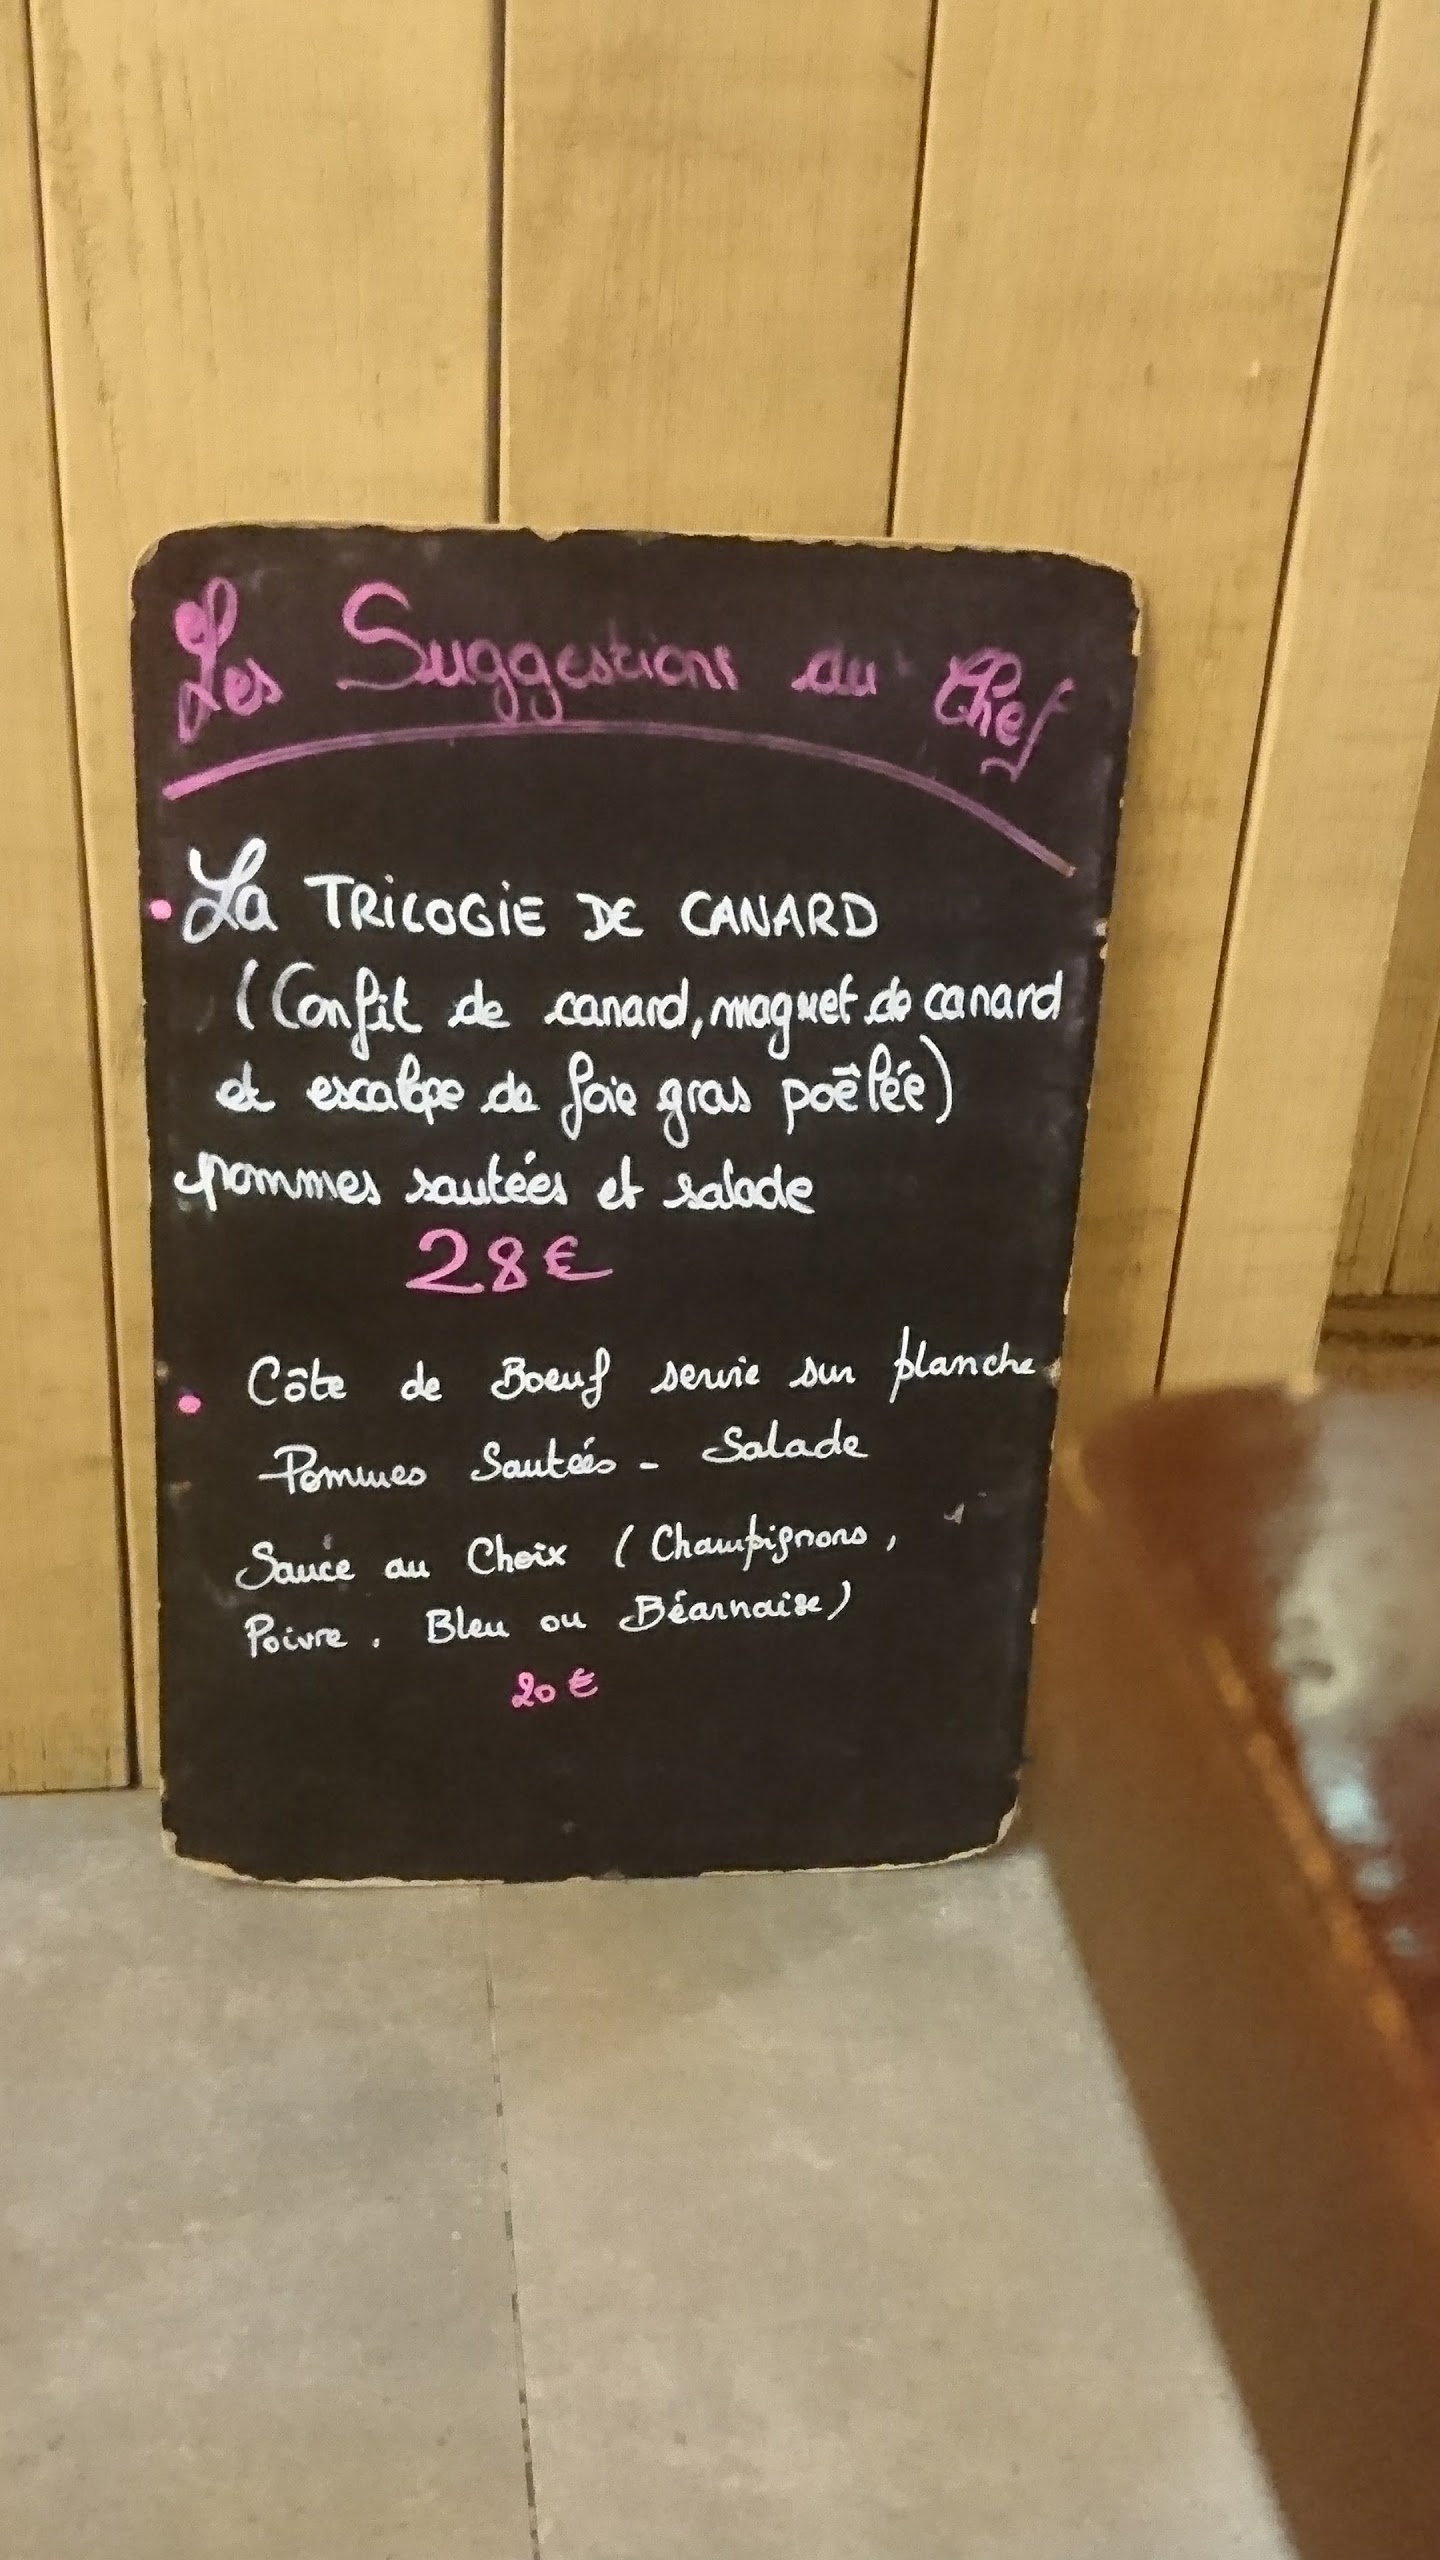 Les Suggestions du Chef
• La TRILOGIE DE CANARD
(Confit de canard, maguet de canard
et escalope de foie gras poêlée)
pommes sautées et salade
28€
• Côte de Boeuf servie sur planche
Pommes Sautées - Salade
Sauce au Choix (Champignons,
Poivre, Bleu ou Béarnaise)
20€